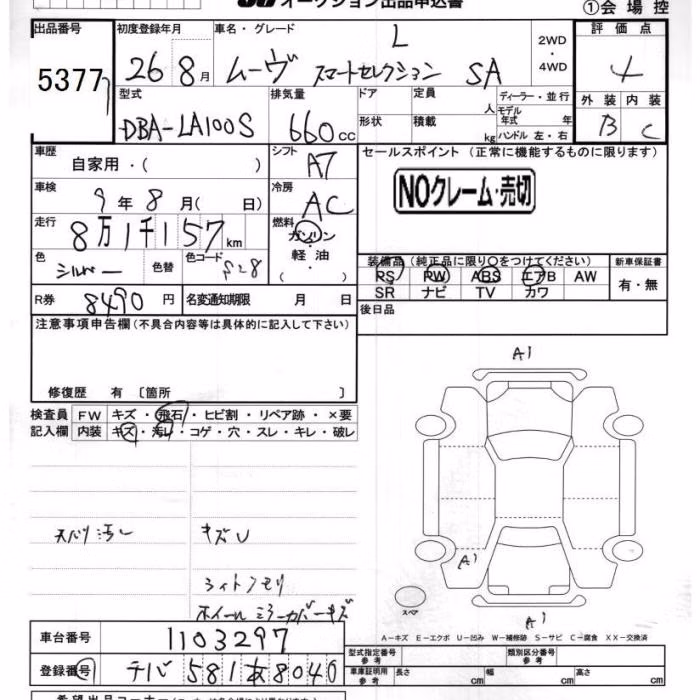 オークション出品申込書 ①会場控
出品番号 初度登録年月 車名・グレード 2WD・4WD 評価点
5377 26 8月 ムーヴ L スマートセレクション SA 4
型式 排気量 ドア 定員 人 ディーラー・並行 外装 内装
DBA-LA100S 660cc 形状 積載 kg モデル年式 年 ハンドル 左・右 B C
車歴 自家用・( ) シフト A7 セールスポイント (正常に機能するものに限ります)
車検 9年8月( 日) 冷房 AC NOクレーム・売切
走行 8万1千157km 燃料 ガソリン・軽油 ( )
色 シルバー 色替 色コード S28 装備品(純正品に限り○をつけてください) 新車保証書
PS PW ABS エアB AW 有・無
SR ナビ TV カワ
R券 8490円 名変通知期限 月 日 後日品
注意事項申告欄(不具合内容等は具体的に記入して下さい)
修復歴 有 〔箇所 〕
検査員 FW キズ・飛石・ヒビ割・リペア跡・×要
記入欄 内装 キズ・汚レ・コゲ・穴・スレ・キレ・破レ
A1
天バリ汚レ キズU
A1
ライトクモリ
ホイール ミラーカバーキズ
スペア A1
A-キズ E-エクボ U-凹み W-補修跡 S-サビ C-腐食 XX-交換済
車台番号 1103297 型式指定番号 参考 類別区分番号 参考
登録番号 チバ 581 8040 車庫証明用 参考 長さ cm 幅 cm 高さ cm